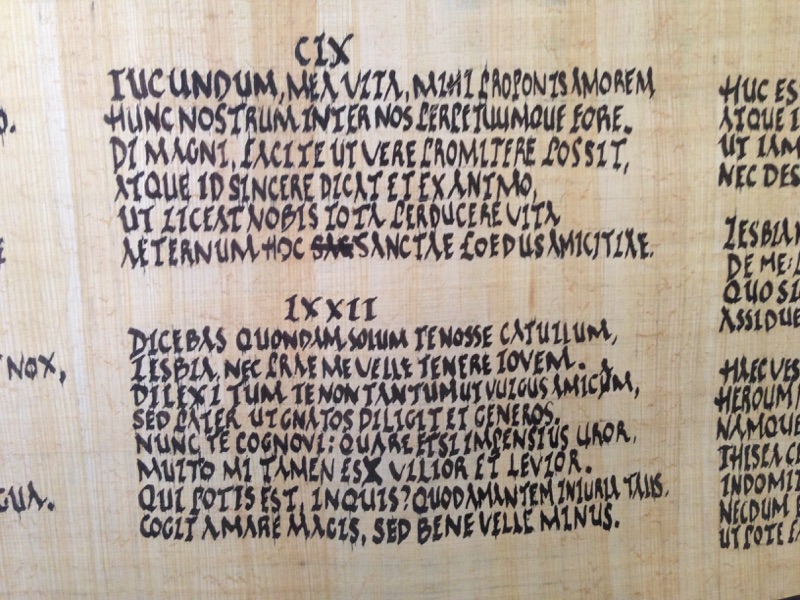 NOX,
GUA.
CIX
IUCUNDUM, MEA VITA, MIHI PROPONIS AMOREM
HUNC NOSTRUM INTER NOS PERPETUUMQUE FORE.
DI MAGNI, FACITE UT VERE PROMITERE POSSIT,
ATQUE ID SINCERE DICAT ET EX ANIMO,
UT LICEAT NOBIS TOTA PERDUCERE VITA
AETERNUM HOC SANCTAE FOEDUS AMICITIAE.
LXXII
DICEBAS QUONDAM SOLUM TE NOSSE CATULLUM,
LESBIA, NEC PRAE ME VELLE TENERE IOVEM.
DILEXI TUM TE NON TANTUM UT VULGUS AMICUM,
SED PATER UT GNATOS DILIGIT ET GENEROS.
NUNC TE COGNOVI: QUARE ETSI IMPENSIUS UROR,
MULTO MI TAMEN ES VILIOR ET LEVIOR.
QUI POTIS EST, INQUIS? QUOD AMANTEM INIURIA TALIS
COGIT AMARE MAGIS, SED BENE VELLE MINUS.
HUC ES
ATQUE I
UT IAM
NEC DES
LESBIA
DE ME:
QUO SI
ASSIDUE
HAEC VES
HEROUM
NAMQUE
THESEA C
INDOMIT
NECDUM
UTPOTE